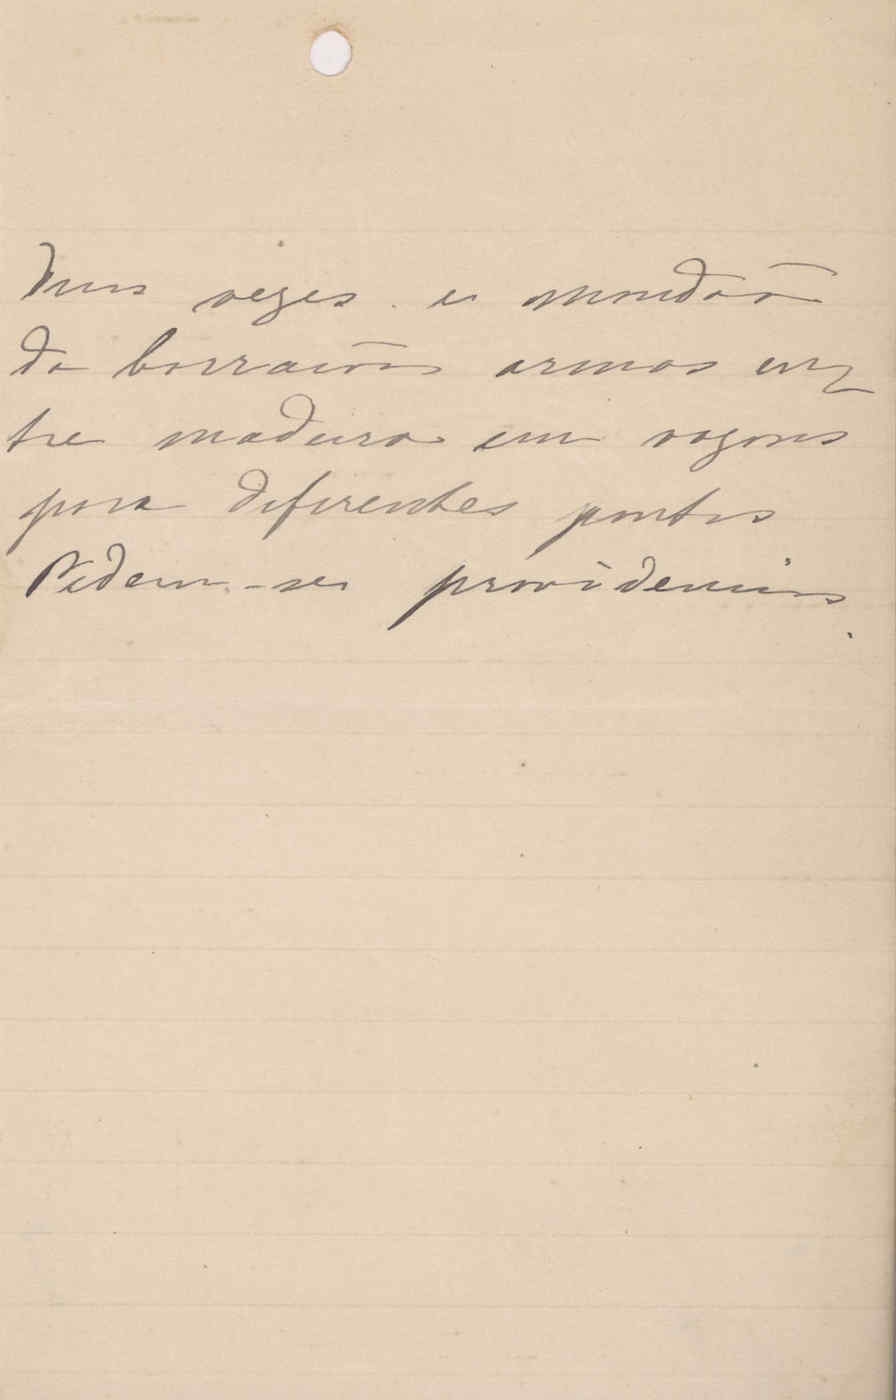 duas vezes e mandão
do barracão armas en
tre madeira em vagons
para diferentes pontos
Pedem-se providencias.